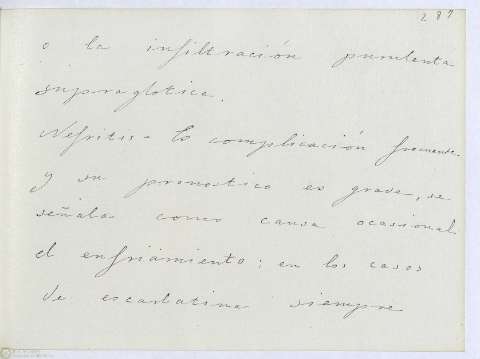 287
o la infiltración purulenta
supraglotica.
Nefritis - Es complicación frecuente.
y su pronostico es grave, se
señala como causa ocasional
el enfriamiento; en los casos
de escarlatina siempre